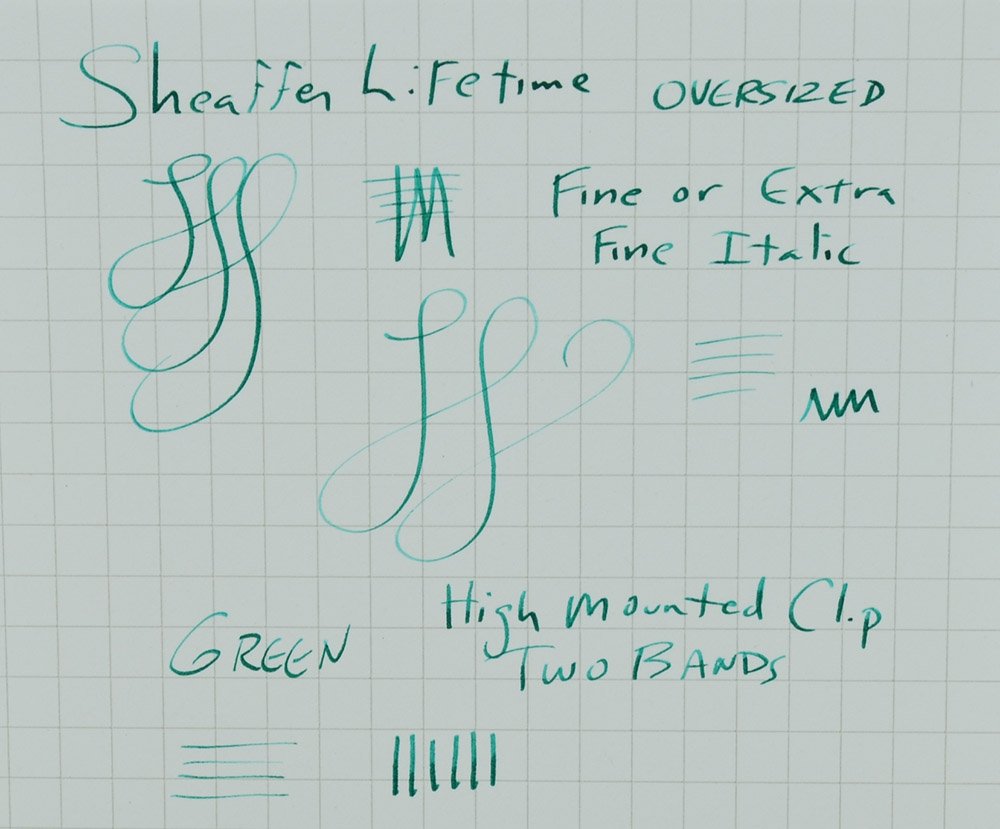 Sheaffer Lifetime OVERSIZED
Fine or Extra
Fine Italic
High Mounted Clip
GREEN
Two BANDS